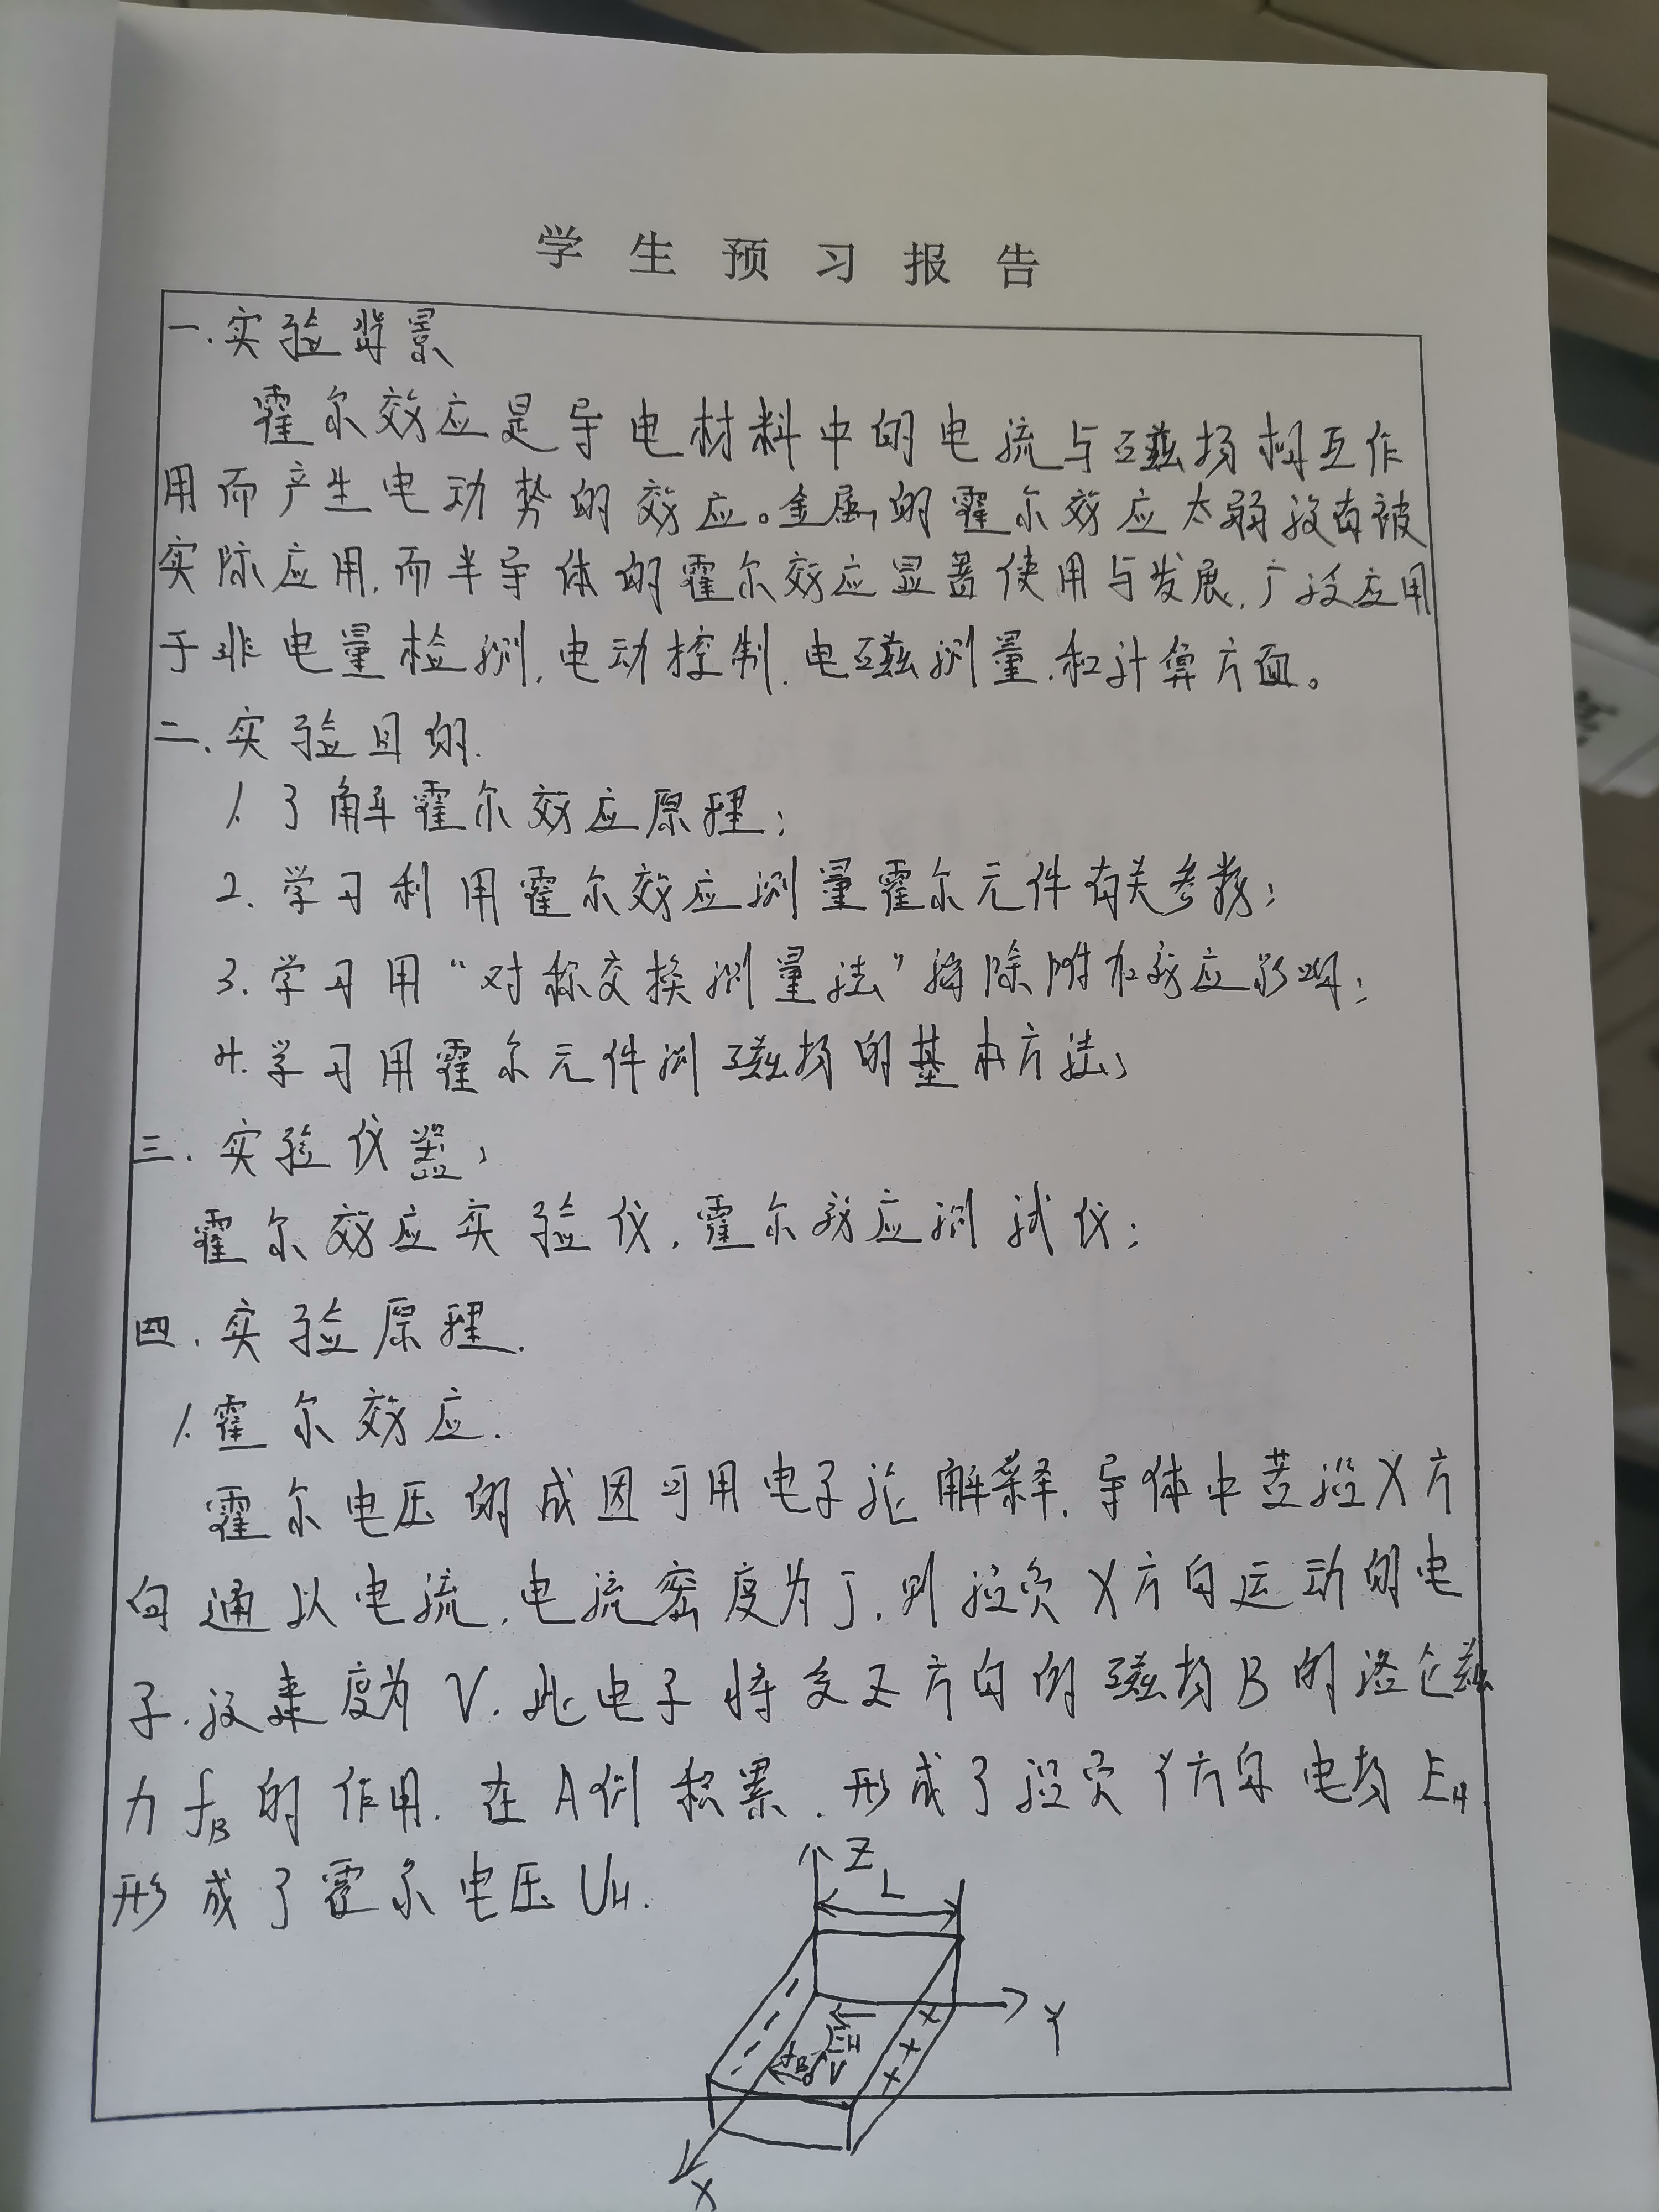 学生预习报告
一.实验背景
霍尔效应是导电材料中的电流与磁场相互作
用而产生电动势的效应。金属的霍尔效应太弱没有被
实际应用,而半导体的霍尔效应显著使用与发展,广泛应用
于非电量检测,电动控制.电磁测量.和计算方面。
二.实验目的.
1.了解霍尔效应原理;
2.学习利用霍尔效应测量霍尔元件有关参数;
3.学习用“对称交换测量法”消除附加效应影响;
4.学习用霍尔元件测磁场的基本方法;
三.实验仪器;
霍尔效应实验仪.霍尔效应测试仪;
四.实验原理.
1.霍尔效应.
霍尔电压的成因可用电子论解释.导体中若沿X方
向通以电流.电流密度为J.则沿负X方向运动的电
子.设速度为V.此电子将受Z方向的磁场B的洛仑兹
力fB的作用.在A侧积累.形成了沿负Y方向电场EH.
形成了霍尔电压UH.
Z
L
Y
EH
fB V
X